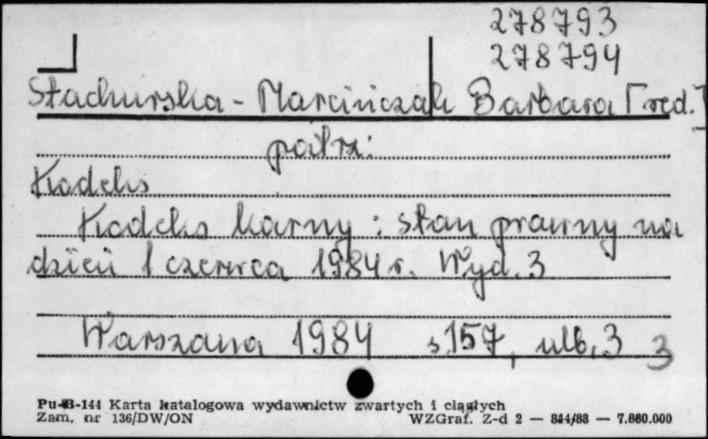 278793
278794
Stachurska - Marcińczak Barbara [red.]
patrz:
Kodeks
Kodeks karny : stan prawny na
dzień 1 czerwca 1984 r. Wyd. 3
Warszawa 1984 s 157, nlb. 3 3
Pu-B-144 Karta katalogowa wydawnictw zwartych i ciągłych
Zam. nr 136/DW/ON WZGraf. Z-d 2 — 844/88 — 7.660.000